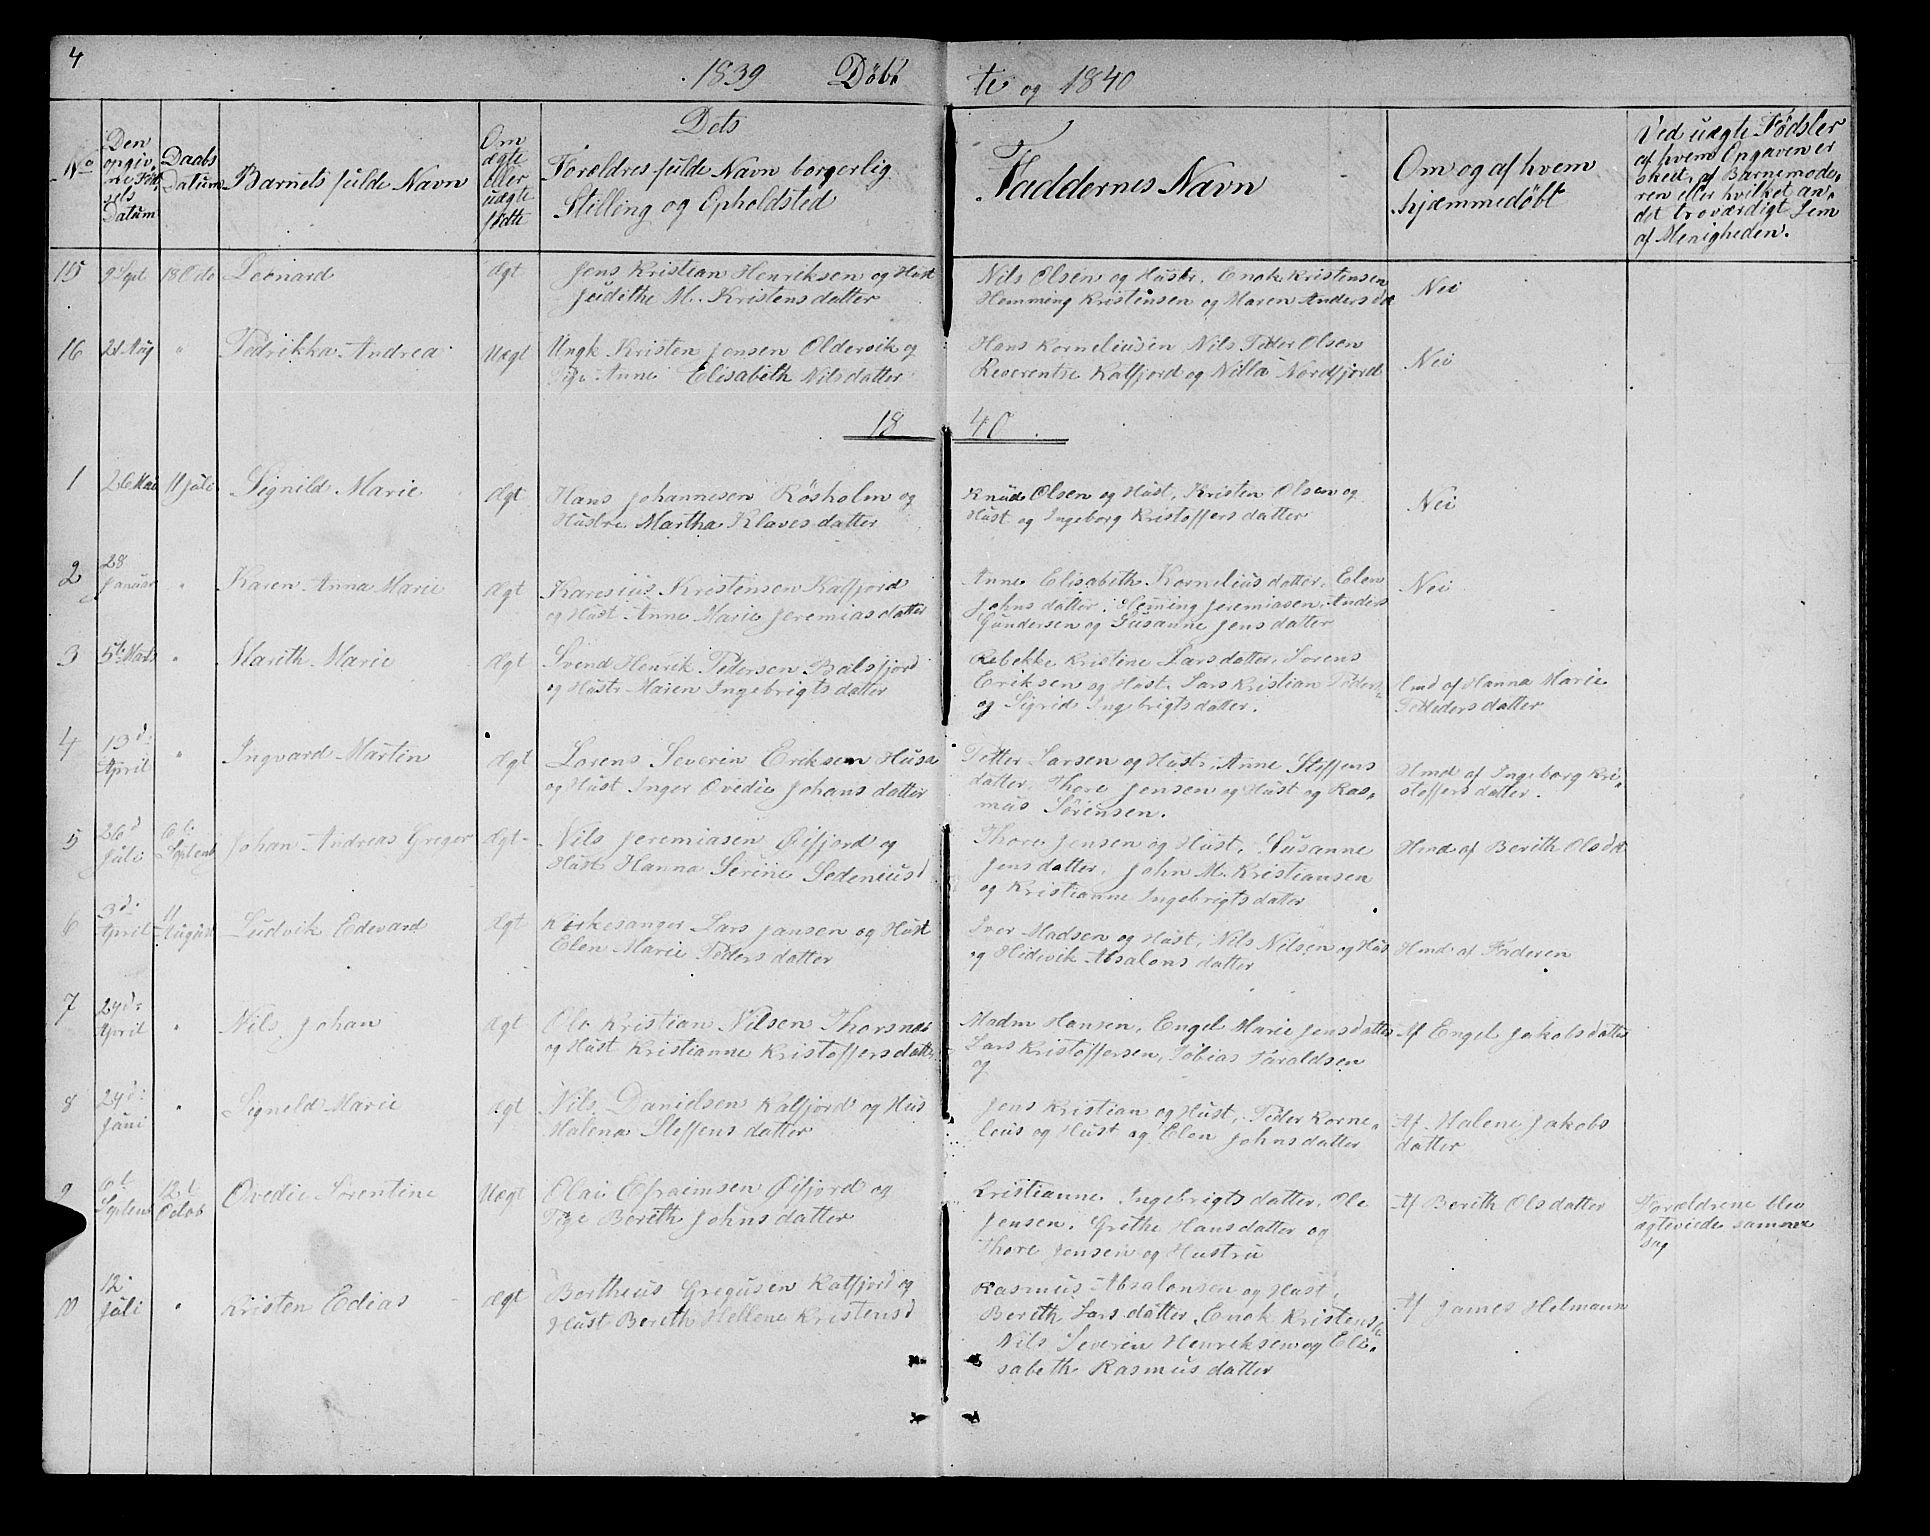 4
1839 Döbte og 1840
No
Den opgivne Födsels Datum
Daabs Datum
Barnets fulde Navn
Om ægte eller uægte födte
Dets
Forældres fulde Navn borgerlig
Stilling og Opholdsted
Faddernes Navn
Om og af hvem
hjæmmedöbt
Ved uægte Födsler
af hvem Opgaven er
skeet, af Barnemode-
ren eller hvilket an-
det troværdigt Lem
af Menigheden.
15 9 Sept 18 Octo Leonard Ægt Jens Kristian Henriksen og Hust
Judithe M. Kristensdatter
Nils Olsen og Hustr. Enok Kristensen
Hemming Kristensen og Maren Andersd
Nei
16 21 Aug " Pedrikka Andrea Uægt Ungk Kristen Jensen Oldervik og
Pige Anne Elisabeth Nilsdatter
Hans Korneliusen Nils Peder Olsen
Reverentse Kalfjord og Nilla Nordfjord
Nei
1840
1 26 Mai 11 Juli Signild Marie Ægt Hans Johannesen Rösholm og
Hustru Martha Klavesdatter
Knud Olsen og Hust, Kristen Olsen og
Hust og Ingeborg Kristoffersdatter
Nei
2 28 Januar " Karen Anna Marie Ægt Karesius Kristensen Kalfjord
og Hust Anne Marie Jeremiasdatter
Anne Elisabeth Korneliusdatter, Elen
Johnsdatter, Heming Jeremiasen, Anders
Gundersen og Susanne Jensdatter
Nei
3 5t Marts " Marith Marie Ægt Svend Henrik Pedersen Balsfjord
og Hustr Maren Ingebrigtsdatter
Rebekke Kristine Larsdatter, Sorens
Eriksen og Hust. Lars Kristian Peders-
og Sigrid Ingebrigtsdatter.
Hmd af Hanna Marie
datter
4 13d April " Ingvard Martin Ægt Lorens Severin Eriksen Husa
og Hust Inger Ovedie Johansdatter
Petter Larsen og Hustr, Anne Steffens
datter, Thore Jensen og Hust og Ras-
mus Sörensen.
Hmd af Ingeborg Kri-
stoffersdatter.
5 26d Juli 6t Septemb Johan Andreas Greger Ægt Nils Jeremiasen Öifjord og
Hust Hanna Serine Sedeniusd
Thore Jensen og Hust, Susanne
Jensdatter, John M. Kristiansen
og Kristianne Ingebrigtsdatter
Hmd af Berith Olsdt
6 3d April 11 August Ludvik Edevard Ægt Kirkesanger Lars Jansen og Hust
Elen Marie Pedersdatter
Iver Madsen og Hust, Nils Nilsen og Hus
og Hidevik Absalonsdatter
Hmd af Faderen
7 24d April " Nils Johan Ægt Ole Kristian Nilsen Thorsnæs
og Hust Kristianne Kristoffersdatte
Madm Hansen, Engel Marie Jensdatter
Lars Kristoffersen, Tobias Haraldsen
og
Af Engel Jakobsdatter
8 24d Juni " Signeld Marie Ægt Nils Danielsen Kalfjord og Hus
Halena Steffensdatter
Jens Kristian og Hust, Peder Korne-
leus og Hust og Elen Johnsdatter
Af Malene Jakobs
datter
9 6t Septemb 12t Octob Ovedie Sörentine Uægt Olai Efraimsen Öifjord og
Pige Berith Johnsdatter
Kristianne Ingebrigtsdatter, Ole
Jensen, Grethe Hansdatter og
Thore Jensen og Hustru
Af Berith Olsdatter
Forældrene blev
egteviede samme
dag
10 12 Juli " Kristen Edias Ægt Bertheus Gregusen Kalfjord og
Hust Berith Hellene Kristensd
Rasmus Absalonsen og Hust,
Berith Larsdatter, Enok Kristens
Nils Severin Henriksen og Eli-
sabeth Rasmusdatter
Af James Helmann